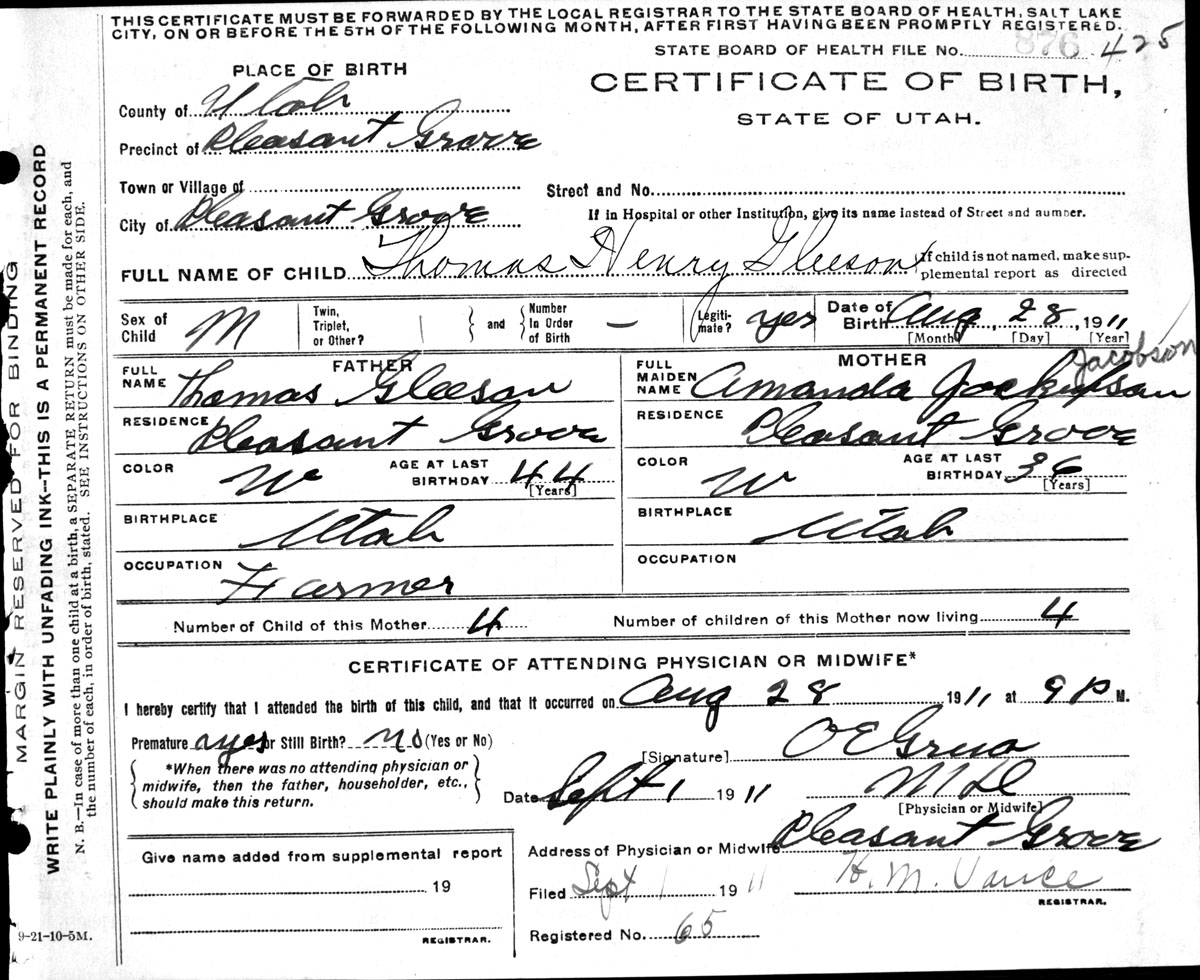 THIS CERTIFICATE MUST BE FORWARDED BY THE LOCAL REGISTRAR TO THE STATE BOARD OF HEALTH, SALT LAKE
CITY, ON OR BEFORE THE 5TH OF THE FOLLOWING MONTH, AFTER FIRST HAVING BEEN PROMPTLY REGISTERED.
STATE BOARD OF HEALTH FILE No. 876 425
PLACE OF BIRTH
CERTIFICATE OF BIRTH,
STATE OF UTAH.
County of Utah
Precinct of Pleasant Grove
Town or Village of
Street and No.
City of Pleasant Grove
If in Hospital or other Institution, give its name instead of Street and number.
FULL NAME OF CHILD Thomas Henry Gleeson
If child is not named, make sup-
plemental report as directed
Sex of Child M
Twin, Triplet, or Other?
and
Number in Order of Birth —
Legiti-mate? yes
Date of Birth Aug 28, 1911
[Month] [Day] [Year]
FATHER
FULL NAME Thomas Gleeson
RESIDENCE Pleasant Grove
COLOR W
AGE AT LAST BIRTHDAY 44
[Years]
BIRTHPLACE Utah
OCCUPATION Farmer
MOTHER
Jacobson
FULL MAIDEN NAME Amanda
RESIDENCE Pleasant Grove
COLOR W
AGE AT LAST BIRTHDAY 36
[Years]
BIRTHPLACE Utah
OCCUPATION
Number of Child of this Mother 4
Number of children of this Mother now living 4
CERTIFICATE OF ATTENDING PHYSICIAN OR MIDWIFE*
I hereby certify that I attended the birth of this child, and that it occurred on Aug 28 1911 at 9 P M.
Premature yes or Still Birth? no (Yes or No)
[Signature] O E Grua
*When there was no attending physician or
midwife, then the father, householder, etc.,
should make this return.
Date Sept 1 1911
M D
[Physician or Midwife]
Address of Physician or Midwife Pleasant Grove
Give name added from supplemental report
19
REGISTRAR.
Filed Sept 1 1911
H. M. Vance
REGISTRAR.
Registered No. 65
9-21-10-5M.
MARGIN RESERVED FOR BINDING
WRITE PLAINLY WITH UNFADING INK--THIS IS A PERMANENT RECORD
N. B.—In case of more than one child at a birth, a SEPARATE RETURN must be made for each, and
the number of each, in order of birth, stated. SEE INSTRUCTIONS ON OTHER SIDE.